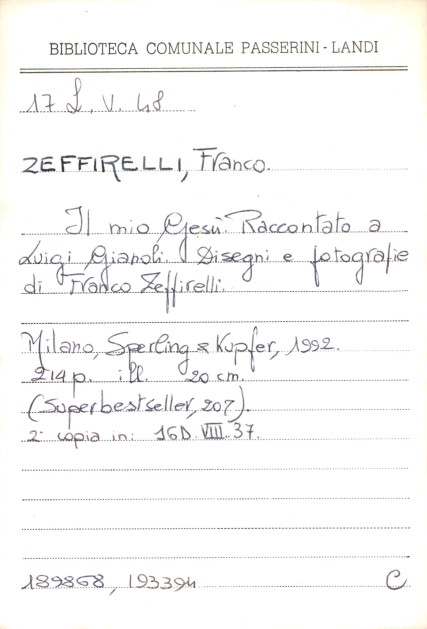 BIBLIOTECA COMUNALE PASSERINI - LANDI
17 L. V. 48
ZEFFIRELLI, Franco.
Il mio Gesù. Raccontato a
Luigi Gianoli. Disegni e fotografie
di Franco Zeffirelli.
Milano, Sperling & Kupfer, 1992.
214 p. ill. 20 cm.
(Superbestseller, 207).
2ª copia in: 16D. VIII. 37.
189868, 193394
C